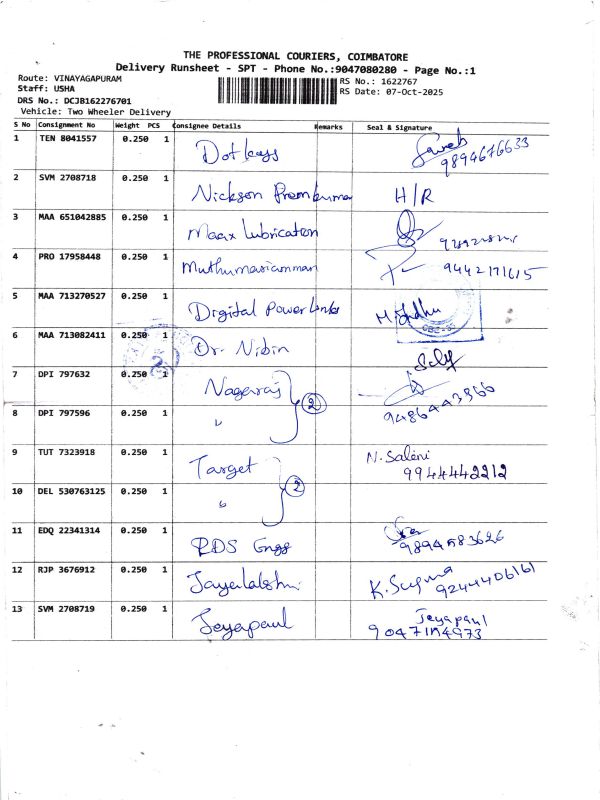 THE PROFESSIONAL COURIERS, COIMBATORE
Delivery Runsheet - SPT - Phone No.:9047080280 - Page No.:1
Route: VINAYAGAPURAM
Staff: USHA
DRS No.: DCJB162276701
Vehicle: Two Wheeler Delivery
RS No.: 1622767
RS Date: 07-Oct-2025
S No Consignment No Weight PCS Consignee Details Remarks Seal & Signature
1 TEN 8041557 0.250 1 Dot kays
9894676633
2 SVM 2708718 0.250 1 Nickson Premkumar H/R
3 MAA 651042885 0.250 1 Maax Lubrication
4 PRO 17958448 0.250 1 Muthumariamman 9442171615
5 MAA 713270527 0.250 1 Digital Power Links
6 MAA 713082411 0.250 1 Dr. Nibin
7 DPI 797632 0.250 1 Nagaraj 2
9486443566
8 DPI 797596 0.250 1 "
9 TUT 7323918 0.250 1 Target N. Saleni
9944442212
10 DEL 530763125 0.250 1 " 2
11 EDQ 22341314 0.250 1 RDS Engg
9894583626
12 RJP 3676912 0.250 1 Jayalakshmi K. Suguna 9244406161
13 SVM 2708719 0.250 1 Jeyapaul Jeyapaul
9047174973